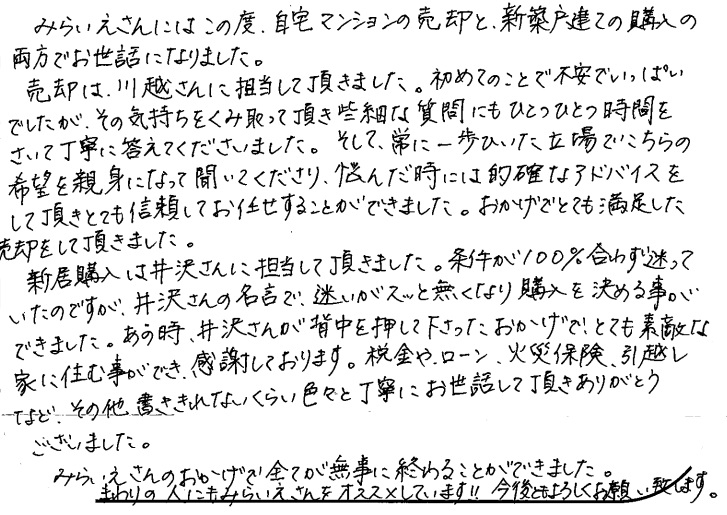 みらいえさんにはこの度、自宅マンションの売却と、新築戸建ての購入の
両方でお世話になりました。
売却は、川越さんに担当して頂きました。初めてのことで不安でいっぱい
でしたが、その気持ちをくみ取って頂き些細な質問にもひとつひとつ時間を
さいて丁寧に答えてくださいました。そして、常に一歩ひいた立場でこちらの
希望を親身になって聞いてくださり、悩んだ時には的確なアドバイスを
して頂きとても信頼してお任せすることができました。おかげでとても満足した
売却をして頂きました。
新居購入は井沢さんに担当して頂きました。条件が100%合わず迷って
いたのですが、井沢さんの名言で、迷いがスッと無くなり購入を決める事が
できました。あの時、井沢さんが背中を押して下さったおかげで、とても素敵な
家に住む事ができ、感謝しております。税金や、ローン、火災保険、引越し
など、その他書ききれないくらい色々と丁寧にお世話して頂きありがとう
ございました。
みらいえさんのおかげで全てが無事に終わることができました。
まわりの人にもみらいえさんをオススメしています!! 今後ともよろしくお願い致します。